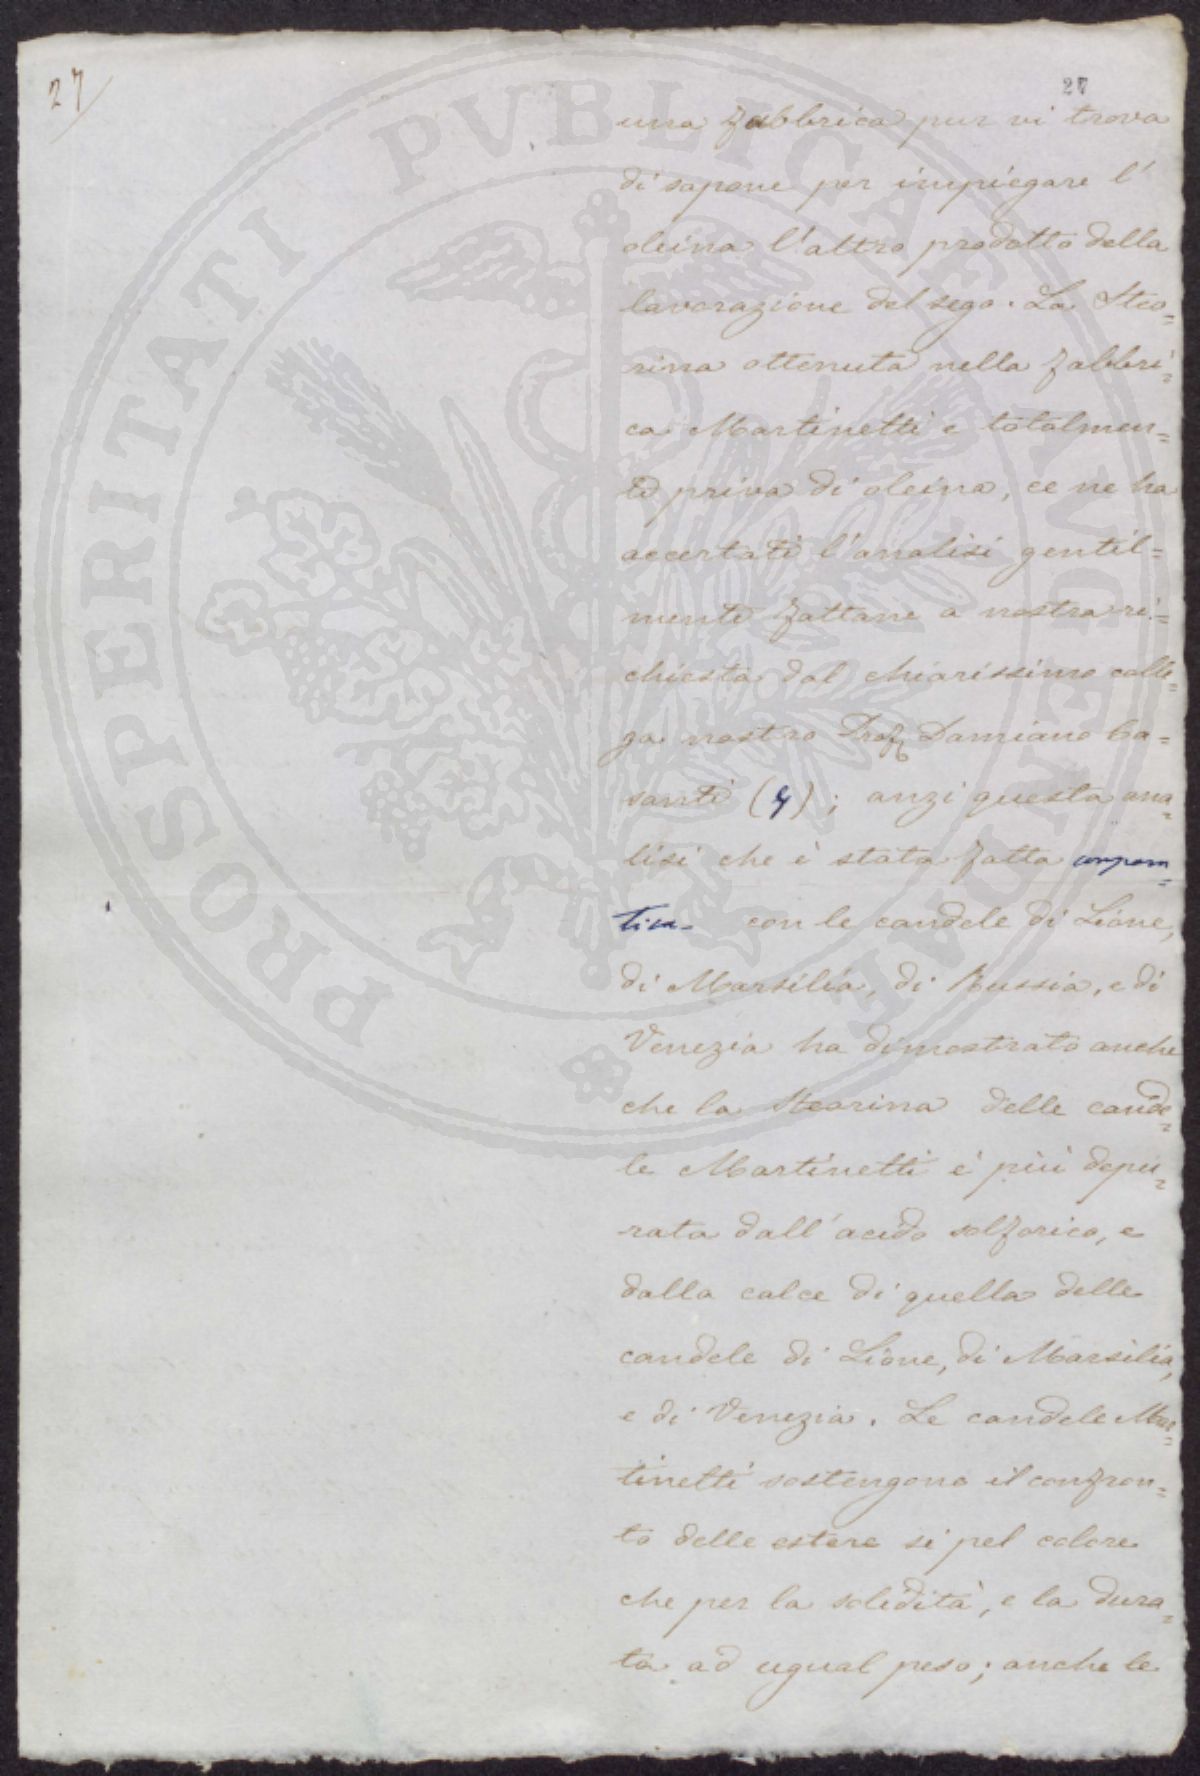 27
27
una fabbrica pur vi trova
di sapone per impiegare l'
oleina l'altro prodotto della
lavorazione del sego. La Stea=
rina ottenuta nella fabbri=
ca Martinetti e totalmen=
te priva di oleina, ce ne ha
accertati l'analisi gentil=
mente fattane a nostra ri=
chiesta dal chiarissimo colle=
ga nostro Prof. Damiano Ca=
santi (4); anzi questa ana=
lisi che è stata fatta compara=
tiva con le candele di Lione,
di Marsilia, di Russia, e di
Venezia ha dimostrato anche
che la Stearina delle cande=
le Martinetti é più depu=
rata dall'acido solforico, e
dalla calce di quella delle
candele di Lione, di Marsilia,
e di Venezia. Le candele Mar=
tinetti sostengono il confron=
to delle estere si pel colore
che per la solidità, e la dura=
ta ad ugual peso; anche le
PROSPERITATI PVBLICAE AVGENDAE